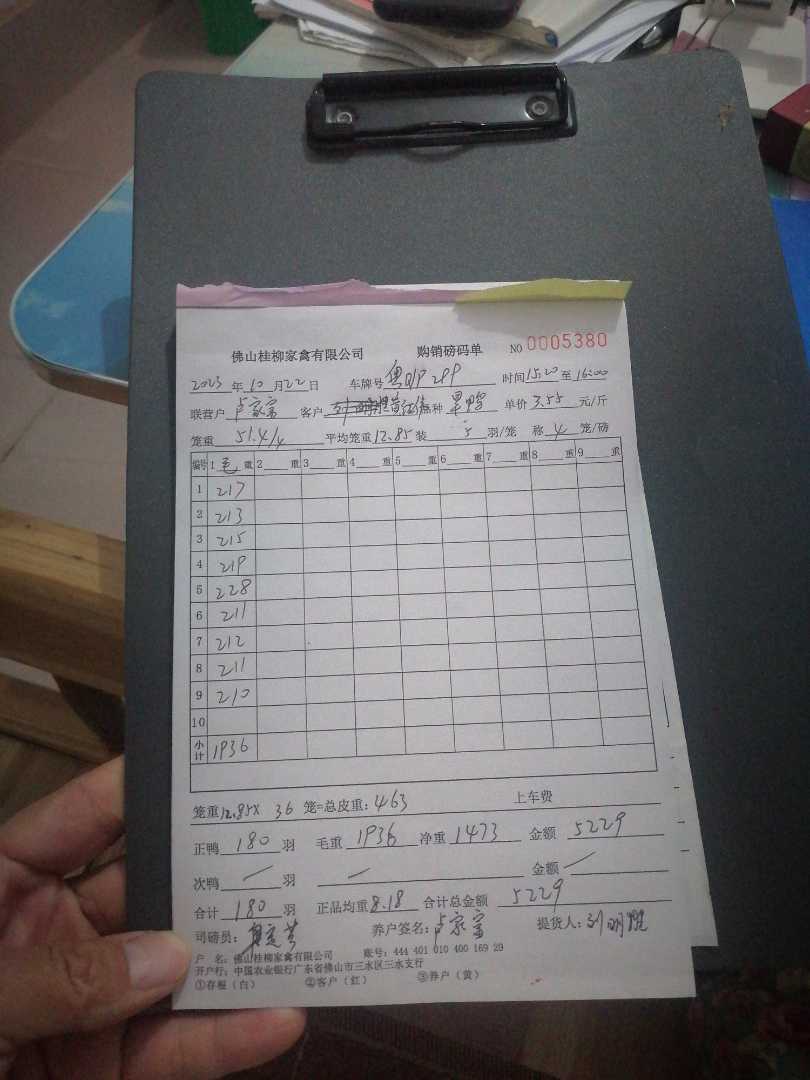 佛山桂柳家禽有限公司 购销磅码单 NO 0005380
2023 年 10 月 22 日 车牌号 粤 时间 15:20 至 16:00
联营户 卢家富 客户 品种 单价 3.55 元/斤
笼重 51.4/4 平均笼重 12.85 装 5 羽/笼 称 4 笼/磅
编号 1 毛 重 2 重 3 重 4 重 5 重 6 重 7 重 8 重 9 重
1 217
2 213
3 215
4 219
5 228
6 211
7 212
8 211
9 210
10
小计 1936
笼重 12.85X 36 笼=总皮重: 463 上车费
正鸭 180 羽 毛重 1936 净重 1473 金额 5229
次鸭 羽 金额
合计 180 羽 正品均重 8.18 合计总金额 5229
司磅员: 养户签名: 卢家富 提货人:
户 名: 佛山桂柳家禽有限公司 账号: 444 401 010 400 169 29
开户行: 中国农业银行广东省佛山市三水区三水支行
①存根(白) ②客户(红) ③养户(黄)